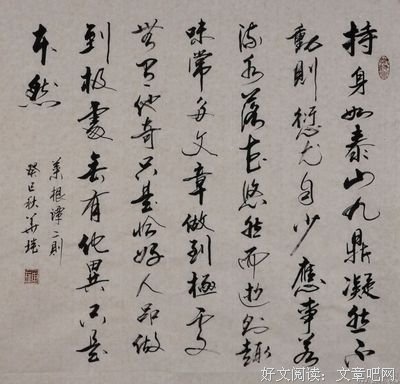 持身如泰山九鼎凝然不
動則愆尤自少應事若
流水落花悠然而逝則趣
味常多文章做到極處
無有他奇只是恰好人品做
到極處無有他異只是
本然
菜根譚二則
癸巳秋
好文阅读:文章吧网